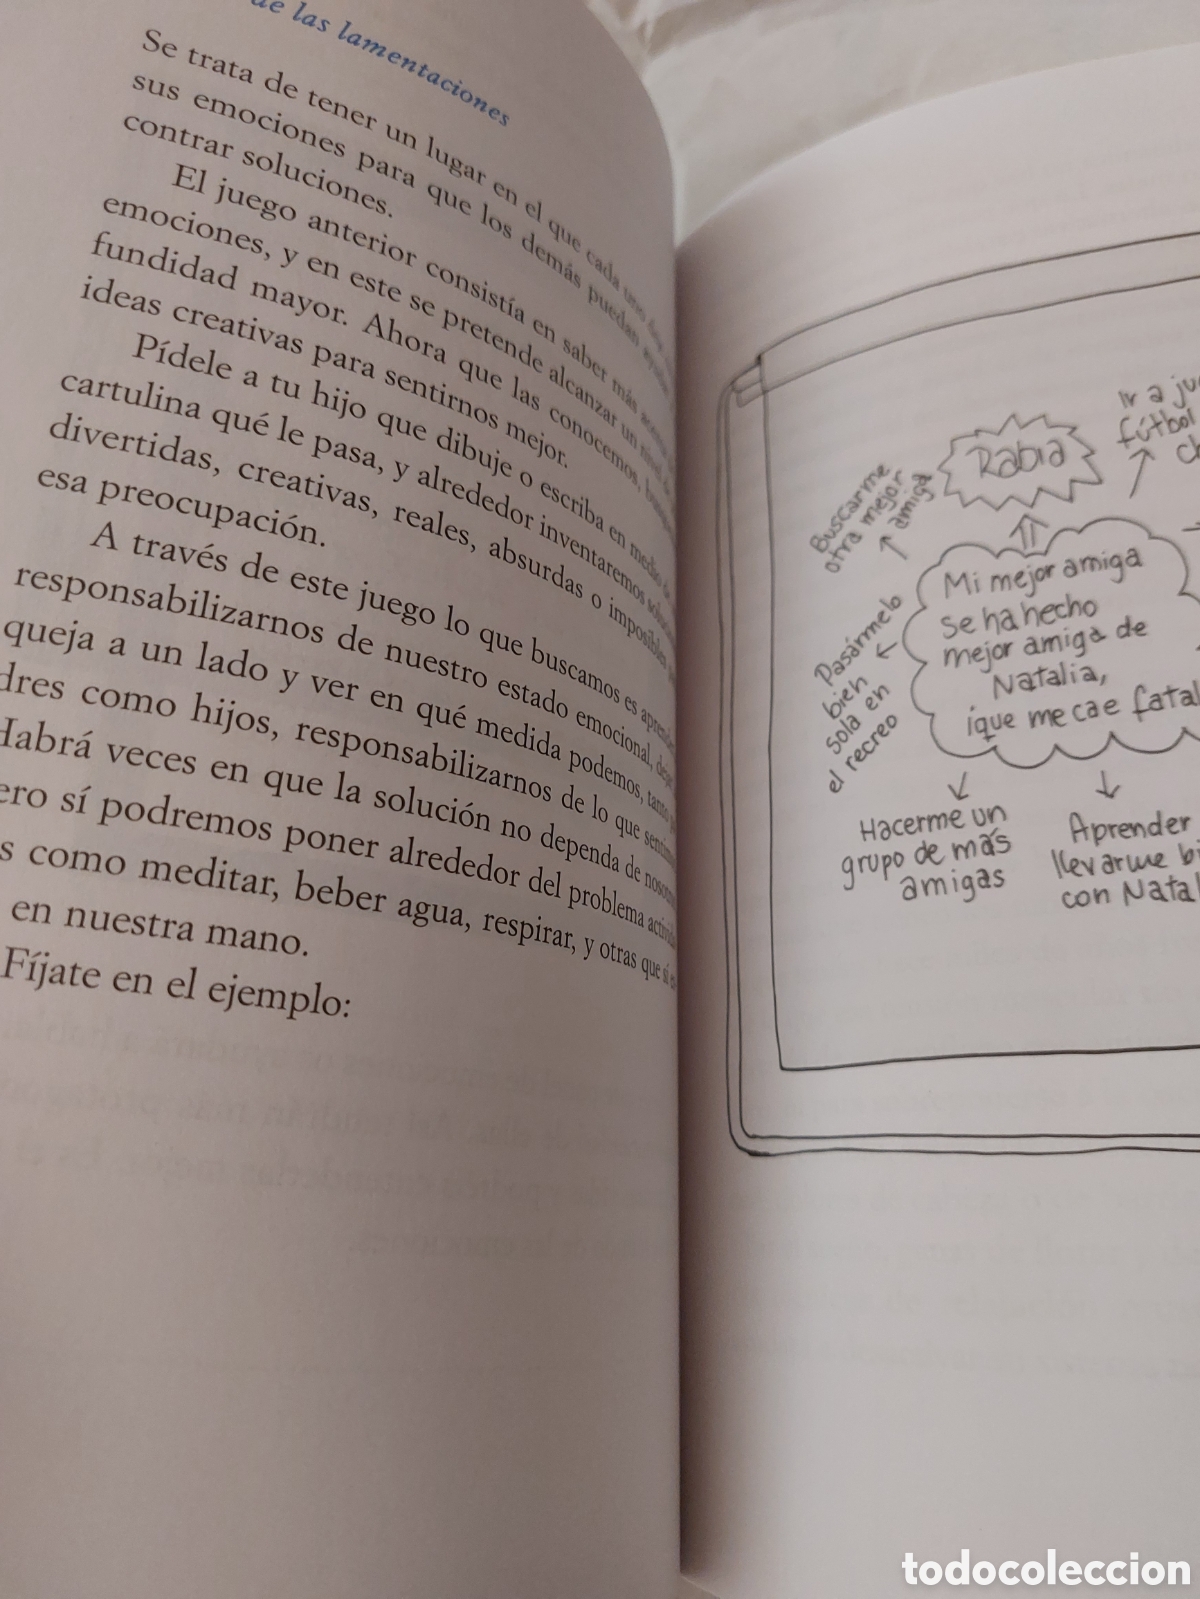 de las lamentaciones
Se trata de tener un lugar en el que cada uno
sus emociones para que los demás puedan
contrar soluciones.
El juego anterior consistía en saber más
emociones, y en este se pretende alcanzar un nivel de
fundidad mayor. Ahora que las conocemos,
ideas creativas para sentirnos mejor.
Pídele a tu hijo que dibuje o escriba en medio de
cartulina qué le pasa, y alrededor inventaremos
divertidas, creativas, reales, absurdas o imposibles
esa preocupación.
A través de este juego lo que buscamos es
responsabilizarnos de nuestro estado emocional,
queja a un lado y ver en qué medida podemos, tanto
dres como hijos, responsabilizarnos de lo que
Habrá veces en que la solución no dependa de
ero sí podremos poner alrededor del problema
s como meditar, beber agua, respirar, y otras que sí
en nuestra mano.
Fíjate en el ejemplo:
Rabia
Ir a
fútbol
Buscarme
otra mejor
amiga
Mi mejor amiga
se ha hecho
mejor amiga de
Natalia,
¡que me cae fatal
Pasármelo
bien
sola en
el recreo
Hacerme un
grupo de más
amigas
Aprender
llevarme
con
todocoleccion